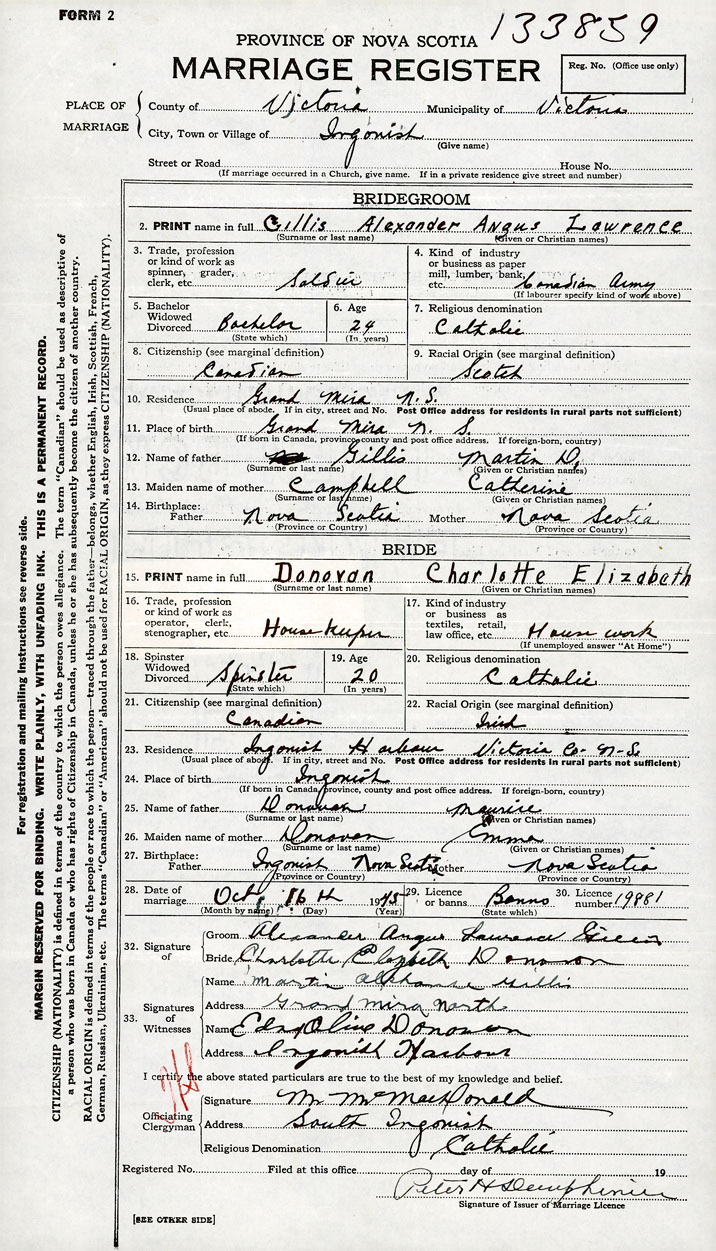 FORM 2
133859
PROVINCE OF NOVA SCOTIA
MARRIAGE REGISTER
Reg. No. (Office use only)
PLACE OF MARRIAGE
County of Victoria Municipality of Victoria
City, Town or Village of Ingonish
(Give name)
Street or Road House No.
(If marriage occurred in a Church, give name. If in a private residence give street and number)
BRIDEGROOM
2. PRINT name in full Gillis Alexander Angus Lawrence
(Surname or last name) (Given or Christian names)
3. Trade, profession or kind of work as spinner, grader, clerk, etc. Soldier
4. Kind of industry or business as paper mill, lumber, bank, etc. Canadian Army
(If labourer specify kind of work above)
5. Bachelor Widowed Divorced Bachelor
(State which)
6. Age 24
(In years)
7. Religious denomination
Catholic
8. Citizenship (see marginal definition)
Canadian
9. Racial Origin (see marginal definition)
Scotch
10. Residence Grand Mira N.S.
(Usual place of abode. If in city, street and No. Post Office address for residents in rural parts not sufficient)
11. Place of birth Grand Mira N. S.
(If born in Canada, province, county and post office address. If foreign-born, country)
12. Name of father Gillis Martin D.
(Surname or last name) (Given or Christian names)
13. Maiden name of mother Campbell Catherine
(Surname or last name) (Given or Christian names)
14. Birthplace: Father Nova Scotia Mother Nova Scotia
(Province or Country) (Province or Country)
BRIDE
15. PRINT name in full Donovan Charlotte Elizabeth
(Surname or last name) (Given or Christian names)
16. Trade, profession or kind of work as operator, clerk, stenographer, etc. House keeper
17. Kind of industry or business as textiles, retail, law office, etc. House work
(If unemployed answer "At Home")
18. Spinster Widowed Divorced Spinster
(State which)
19. Age 20
(In years)
20. Religious denomination
Catholic
21. Citizenship (see marginal definition)
Canadian
22. Racial Origin (see marginal definition)
Irish
23. Residence Ingonish Harbour Victoria Co. N.S.
(Usual place of abode. If in city, street and No. Post Office address for residents in rural parts not sufficient)
24. Place of birth Ingonish
(If born in Canada, province, county and post office address. If foreign-born, country)
25. Name of father Donovan Maurice
(Surname or last name) (Given or Christian names)
26. Maiden name of mother Donovan Emma
(Surname or last name) (Given or Christian names)
27. Birthplace: Father Ingonish Nova Scotia Mother Nova Scotia
(Province or Country) (Province or Country)
28. Date of marriage Oct. 16th 1945
(Month by name) (Day) (Year)
29. Licence or banns Banns
(State which)
30. Licence number 19881
32. Signature of
Groom Alexander Angus Lawrence Gillis
Bride Charlotte Elizabeth Donovan
33. Signatures of Witnesses
Name Martin Gillis
Address Grand Mira North
Name Donovan
Address Ingonish Harbour
I certify the above stated particulars are true to the best of my knowledge and belief.
Officiating Clergyman
Signature MacDonald
Address South Ingonish
Religious Denomination Catholic
Registered No. Filed at this office day of 19
Peter H
Signature of Issuer of Marriage Licence
[SEE OTHER SIDE]
For registration and mailing instructions see reverse side.
MARGIN RESERVED FOR BINDING. WRITE PLAINLY, WITH UNFADING INK. THIS IS A PERMANENT RECORD.
CITIZENSHIP (NATIONALITY) is defined in terms of the country to which the person owes allegiance. The term "Canadian" should be used as descriptive of
a person who was born in Canada or who has rights of Citizenship in Canada, unless he or she has subsequently become the citizen of another country.
RACIAL ORIGIN is defined in terms of the people or race to which the person—traced through the father—belongs, whether English, Irish, Scottish, French,
German, Russian, Ukrainian, etc. The terms "Canadian" or "American" should not be used for RACIAL ORIGIN, as they express CITIZENSHIP (NATIONALITY).